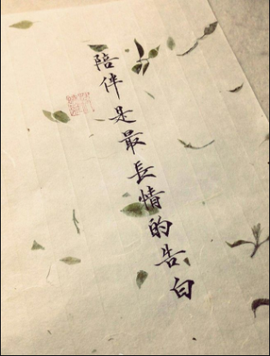 陪伴是最長情的告白